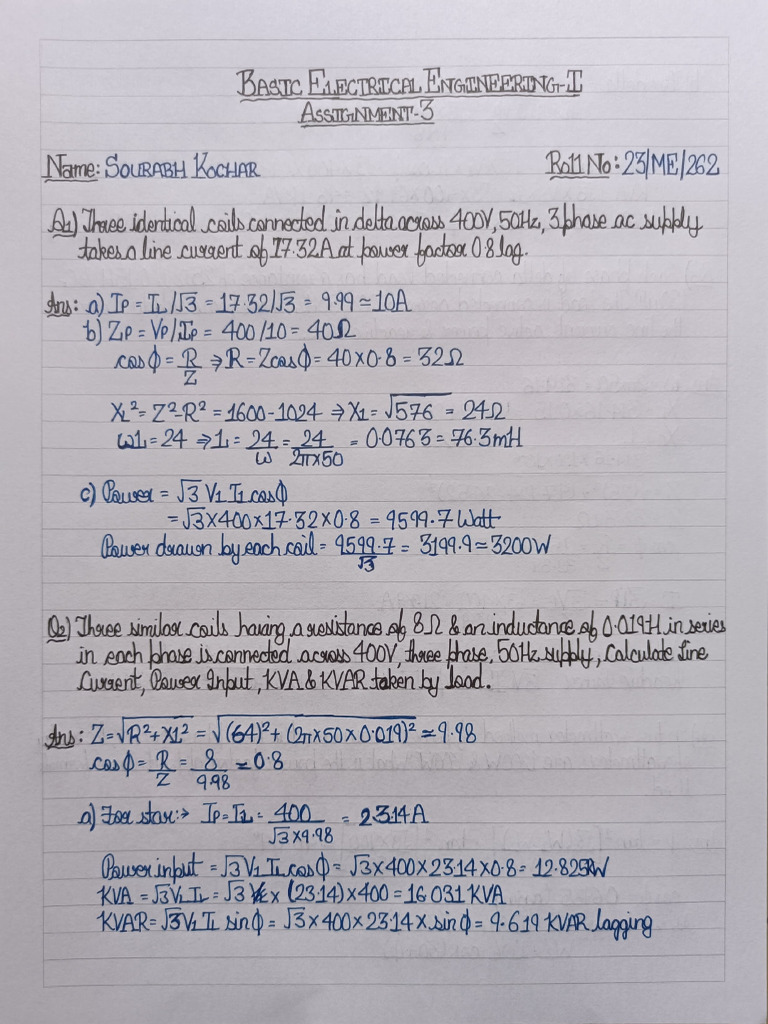 BASIC ELECTRICAL ENGINEERING-I
ASSIGNMENT-3
Name: SOURABH KOCHAR Roll No: 23/ME/262
Q1) Three identical coils connected in delta across 400V, 50Hz, 3 phase ac supply
takes a line current of 17.32A at power factor 0.8 lag.
Ans: a) IP = IL/√3 = 17.32/√3 = 9.99 ≃ 10A
b) ZP = VP/IP = 400/10 = 40Ω
cosϕ = R/Z ⇒ R = Zcosϕ = 40×0.8 = 32Ω
XL² = Z²-R² = 1600-1024 ⇒ XL = √576 = 24Ω
ωL = 24 ⇒ L = 24/ω = 24/2π×50 = 0.0763 = 76.3mH
c) Power = √3 VL IL cosϕ
= √3×400×17.32×0.8 = 9599.7 Watt
Power drawn by each coil = 9599.7/√3 = 3199.9 ≃ 3200W
Q2) Three similar coils having a resistance of 8Ω & an inductance of 0.019H in series
in each phase is connected across 400V, three phase, 50Hz supply, Calculate Line
Current, Power Input, KVA & KVAR taken by load.
Ans: Z = √R²+XL² = √(64)²+(2π×50×0.019)² ≃ 9.98
cosϕ = R/Z = 8/9.98 ≃ 0.8
a) For star:→ IP = IL = 400/√3×9.98 = 23.14A
Power input = √3 VL IL cosϕ = √3×400×23.14×0.8 = 12.825KW
KVA = √3 VL IL = √3 × (23.14)×400 = 16.031 KVA
KVAR = √3 VL IL sinϕ = √3×400×23.14×sinϕ = 9.619 KVAR lagging